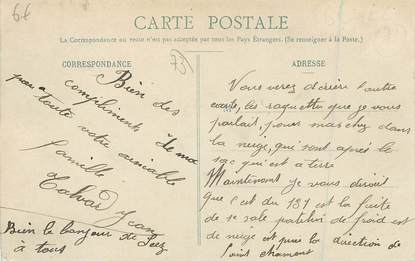 6€
CARTE POSTALE
La Correspondance au recto n'est pas acceptée par tous les Pays Étrangers. (Se renseigner à la Poste.)
CORRESPONDANCE
73
ADRESSE
Bien des
compliments de moi
pour toute votre aimable
famille
Calvas Jean
Bien le bonjour de Séez
à tous
Vous verez dérière l'autre
carte, les raquettes que je vous
parlait, pour marchez dans
la neige, qui sont après le
sac qui est à terre
Maintenant je vous diroit
que c'est du 131 est la fuite
de se sale patelin de froid est
de neige est pour la direction de
Saint Chamont